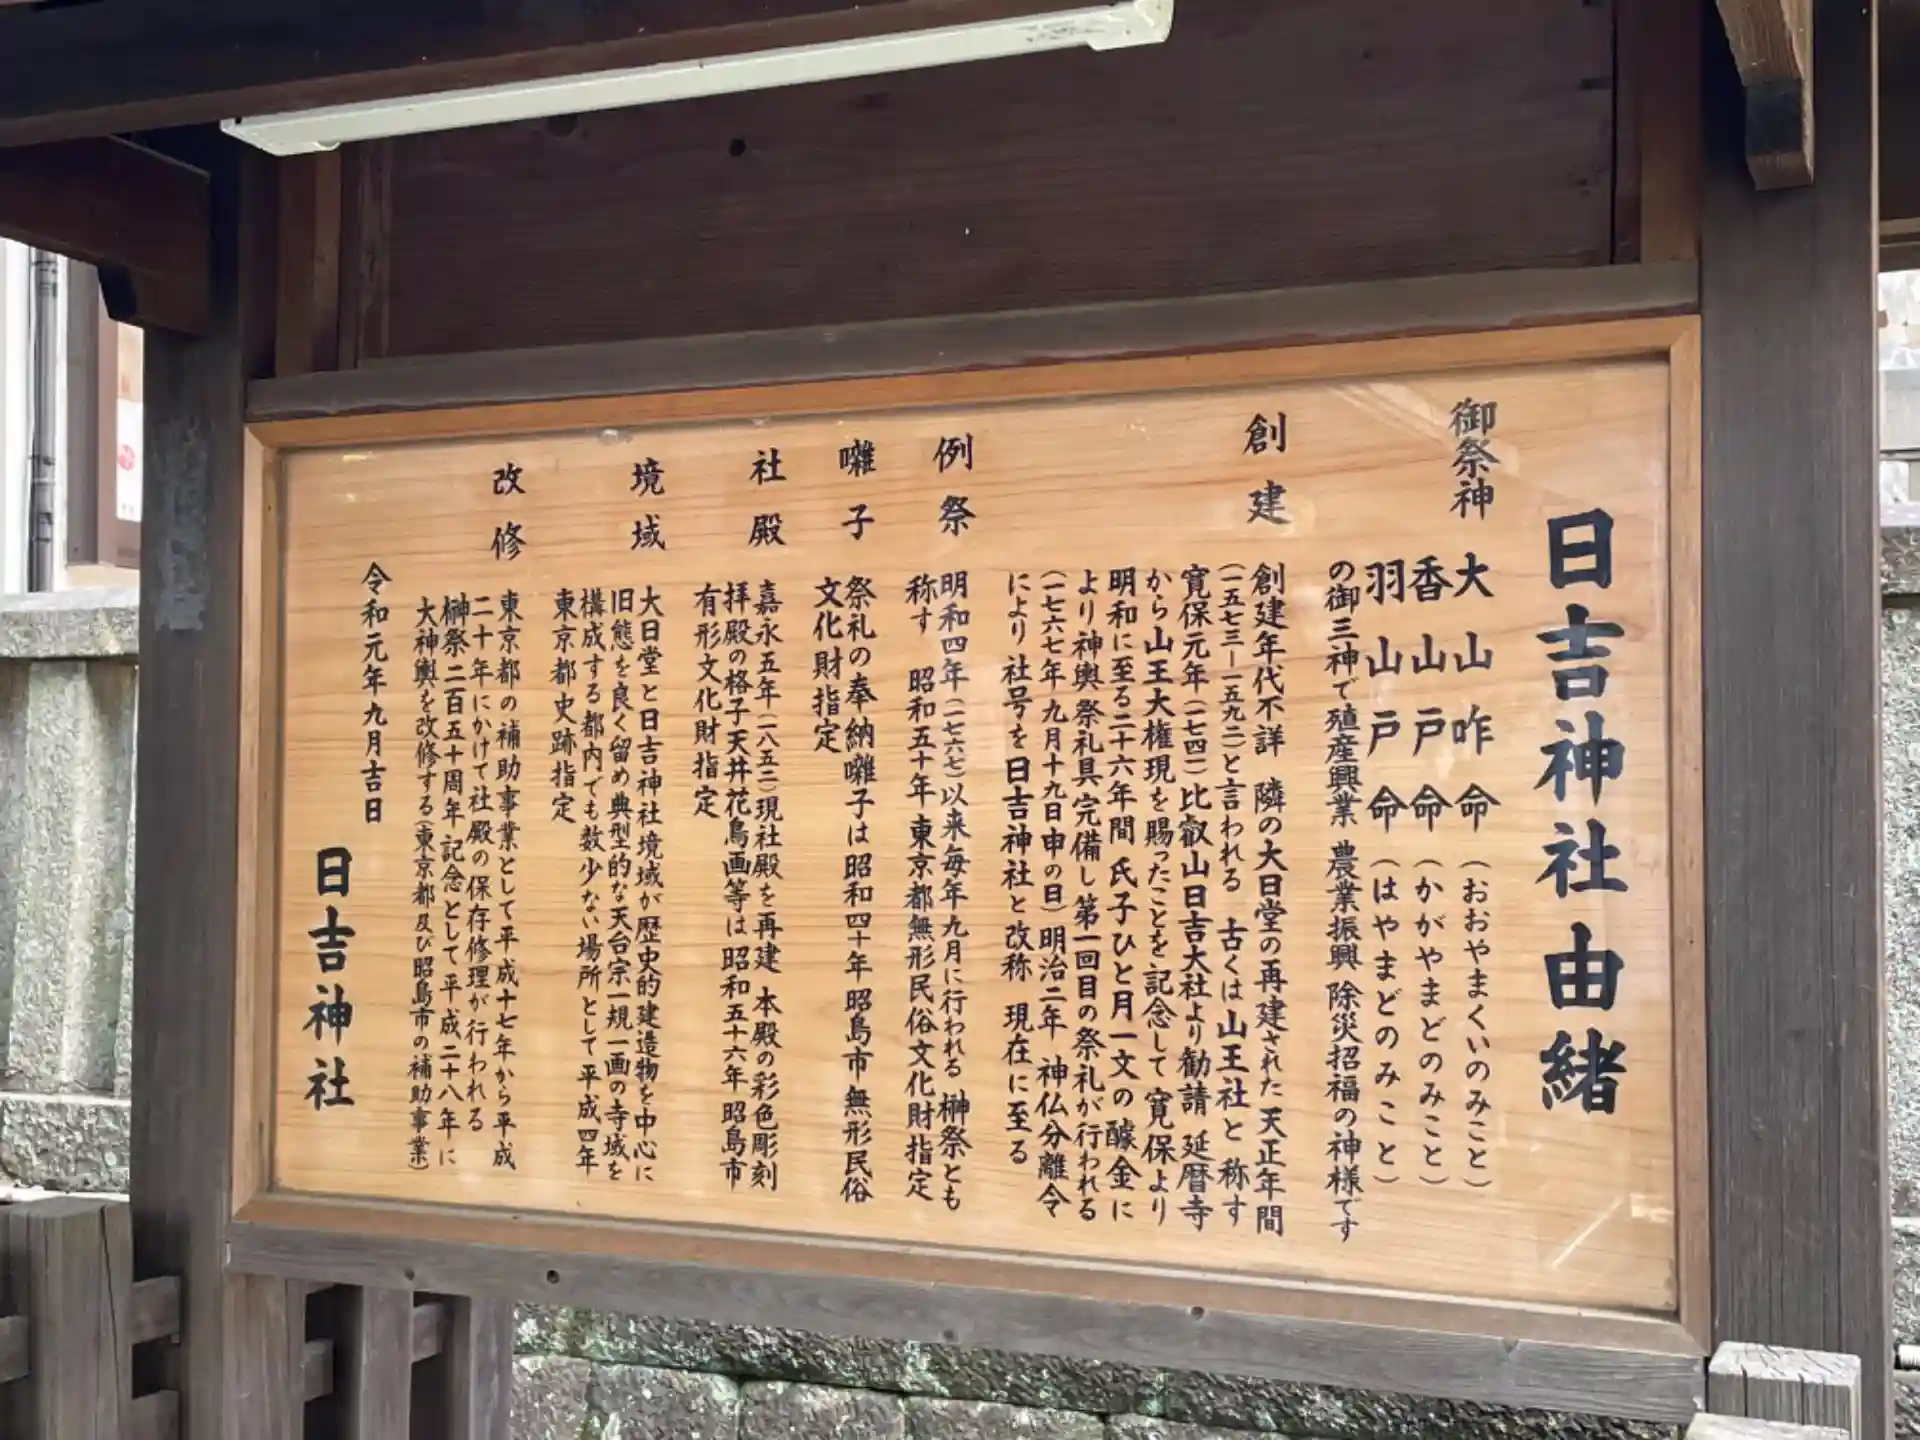 日吉神社由緒
御祭神 大山咋命(おおやまくいのみこと)
香山戸命(かがやまどのみこと)
羽山戸命(はやまどのみこと)
の御三神で殖産興業 農業振興 除災招福の神様です
創建 創建年代不詳 隣の大日堂の再建された天正年間
(一五七三ー一五九二)と言われる 古くは山王社と称す
寛保元年(一七四一)比叡山日吉大社より勧請 延暦寺
から山王大権現を賜ったことを記念して 寛保より
明和に至る二十六年間 氏子ひと月一文の醵金に
より神輿祭礼具完備し第一回目の祭礼が行われる
(一七六七年九月十九日申の日)明治二年 神仏分離令
により社号を日吉神社と改称 現在に至る
例祭 明和四年(一七六七)以来毎年九月に行われる 榊祭とも
称す 昭和五十年 東京都無形民俗文化財指定
囃子 祭礼の奉納囃子は昭和四十年 昭島市 無形民俗
文化財指定
社殿 嘉永五年(一八五二)現社殿を再建 本殿の彩色彫刻
拝殿の格子天井花鳥画等は昭和五十六年 昭島市
有形文化財指定
境域 大日堂と日吉神社境域が歴史的建造物を中心に
旧態を良く留め典型的な天台宗一規一画の寺域を
構成する都内でも数少ない場所として平成四年
東京都史跡指定
改修 東京都の補助事業として平成十七年から平成
二十年にかけて社殿の保存修理が行われる
榊祭二百五十周年記念として平成二十八年に
大神輿を改修する(東京都及び昭島市の補助事業)
令和元年九月吉日
日吉神社